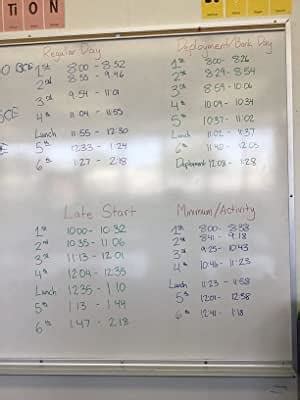 TION
Regular Day
1st 8:00 - 8:52
2nd 8:55 - 9:46
3rd 9:54 - 11:01
4th 11:04 - 11:55
Lunch 11:55 - 12:30
5th 12:33 - 1:24
6th 1:27 - 2:18
Deployment/Bank Day
1st 8:00 - 8:26
2nd 8:29 - 8:54
3rd 8:59 - 10:06
4th 10:09 - 10:34
5th 10:37 - 11:02
Lunch 11:02 - 11:37
6th 11:40 - 12:05
Deployment 12:08 - 1:28
Late Start
1st 10:00 - 10:32
2nd 10:35 - 11:06
3rd 11:13 - 12:01
4th 12:04 - 12:35
Lunch 12:35 - 1:10
5th 1:13 - 1:44
6th 1:47 - 2:18
Minimum/Activity
1st 8:00 - 8:38
2nd 8:41 - 9:18
3rd 9:25 - 10:43
4th 10:46 - 11:23
Lunch 11:23 - 11:58
5th 12:01 - 12:38
6th 12:41 - 1:18